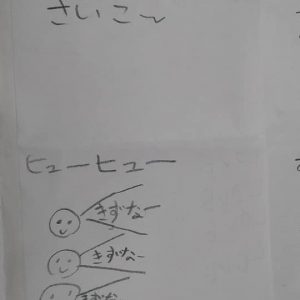 さいこ〜
ヒューヒュー
きずなー
きずなー
きずな